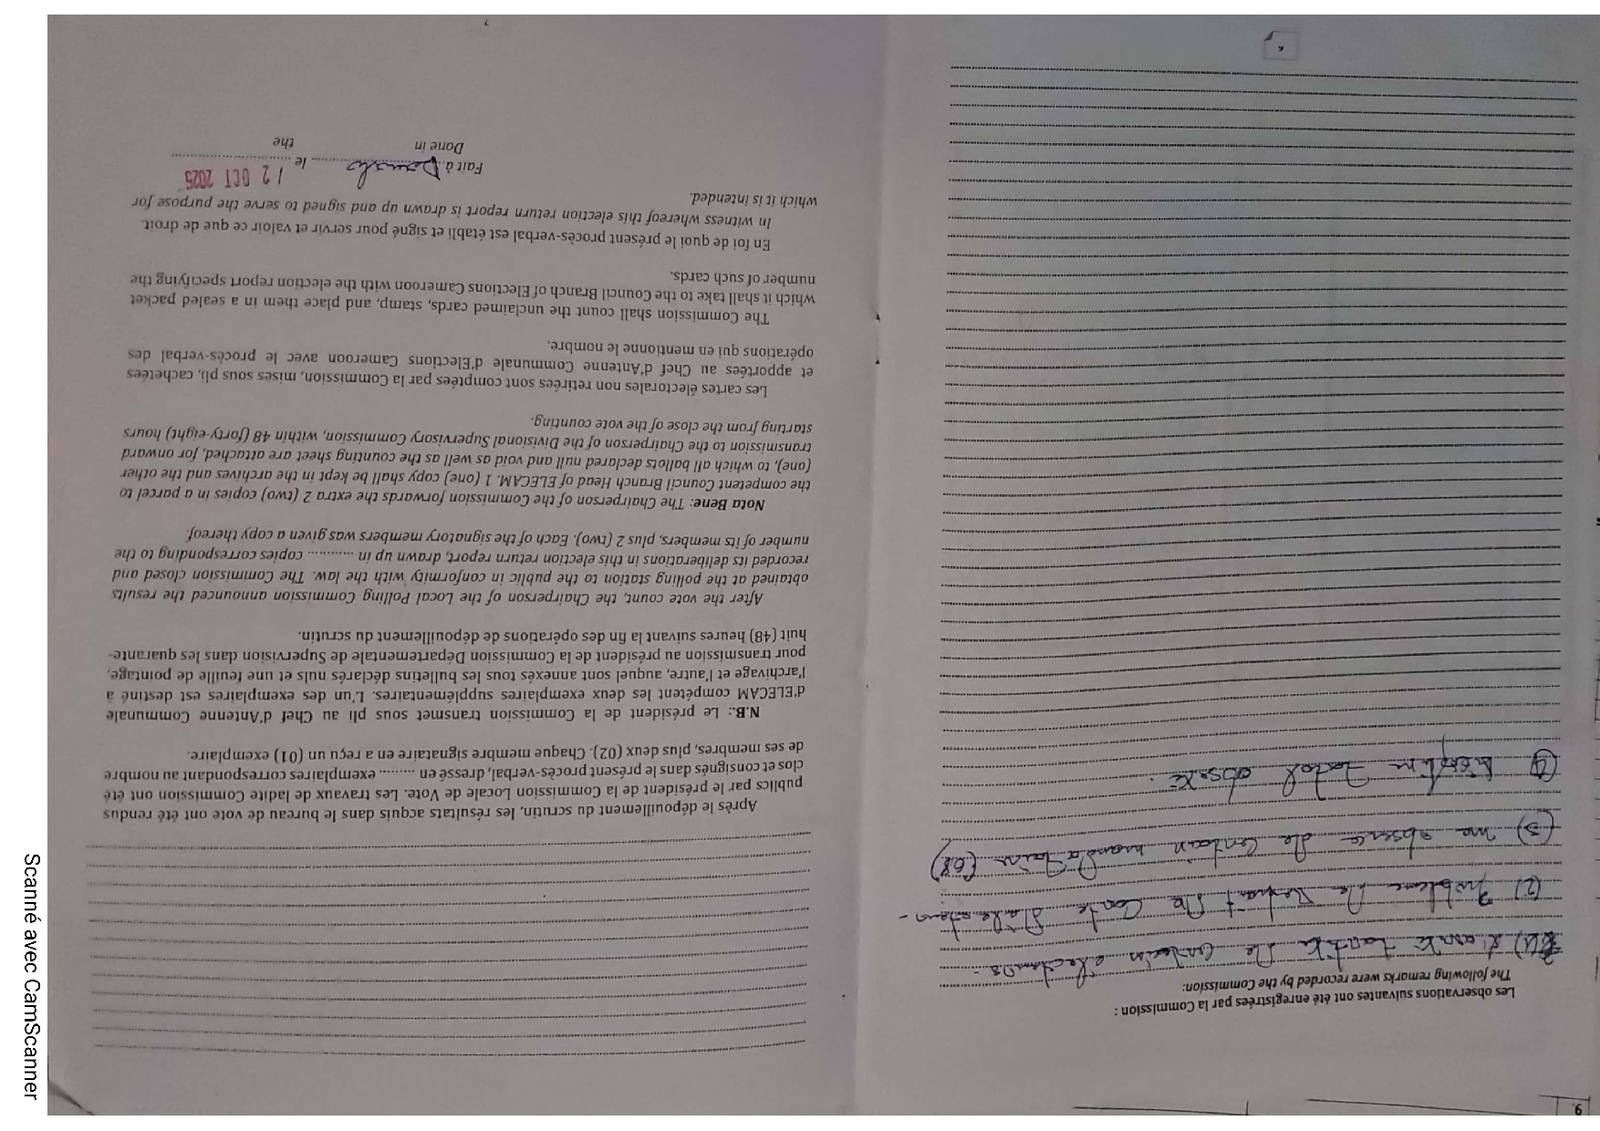 9.
Les observations suivantes ont été enregistrées par la Commission :
The following remarks were recorded by the Commission:
(1) tardive de certain electeurs
(2) problème de Retrait de Carte
(3) une absence de certain mandataire (08)
(4)
Après le dépouillement du scrutin, les résultats acquis dans le bureau de vote ont été rendus
publics par le président de la Commission Locale de Vote. Les travaux de ladite Commission ont été
clos et consignés dans le présent procès-verbal, dressé en ......... exemplaires correspondant au nombre
de ses membres, plus deux (02). Chaque membre signataire en a reçu un (01) exemplaire.
N.B.: Le président de la Commission transmet sous pli au Chef d'Antenne Communale
d'ELECAM compétent les deux exemplaires supplémentaires. L'un des exemplaires est destiné à
l'archivage et l'autre, auquel sont annexés tous les bulletins déclarés nuls et une feuille de pointage,
pour transmission au président de la Commission Départementale de Supervision dans les quarante-
huit (48) heures suivant la fin des opérations de dépouillement du scrutin.
After the vote count, the Chairperson of the Local Polling Commission announced the results
obtained at the polling station to the public in conformity with the law. The Commission closed and
recorded its deliberations in this election return report, drawn up in ............ copies corresponding to the
number of its members, plus 2 (two). Each of the signatory members was given a copy thereof.
Nota Bene: The Chairperson of the Commission forwards the extra 2 (two) copies in a parcel to
the competent Council Branch Head of ELECAM. 1 (one) copy shall be kept in the archives and the other
(one), to which all ballots declared null and void as well as the counting sheet are attached, for onward
transmission to the Chairperson of the Divisional Supervisory Commission, within 48 (forty-eight) hours
starting from the close of the vote counting.
Les cartes électorales non retirées sont comptées par la Commission, mises sous pli, cachetées
et apportées au Chef d'Antenne Communale d'Elections Cameroon avec le procès-verbal des
opérations qui en mentionne le nombre.
The Commission shall count the unclaimed cards, stamp, and place them in a sealed packet
which it shall take to the Council Branch of Elections Cameroon with the election report specifying the
number of such cards.
En foi de quoi le présent procès-verbal est établi et signé pour servir et valoir ce que de droit.
In witness whereof this election return report is drawn up and signed to serve the purpose for
which it is intended.
Fait à Douala le 12 OCT 2025
Done in the
Scanné avec CamScanner